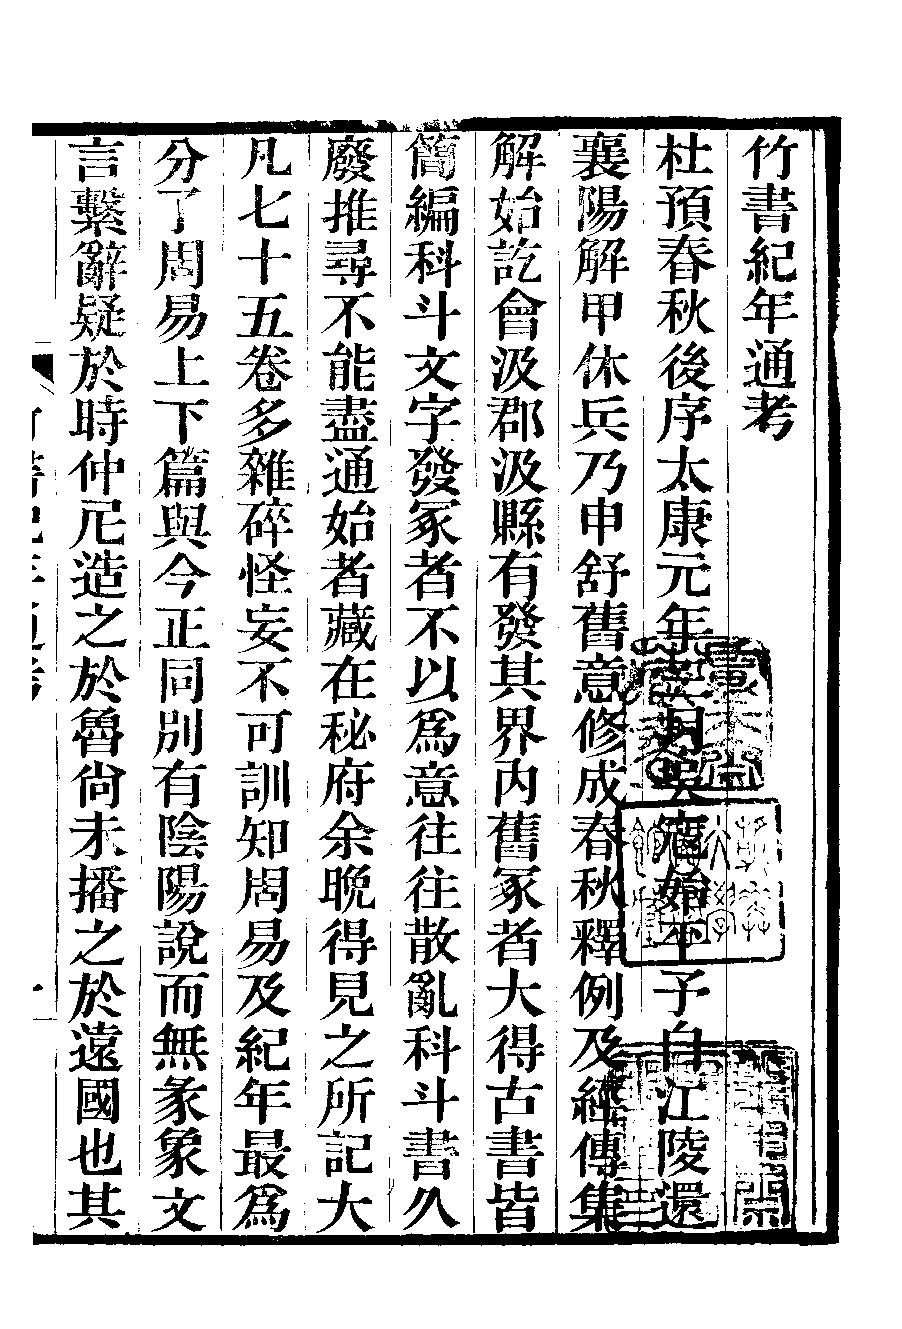 竹書紀年通考
杜預春秋後序太康元年三月吳寇始平予自江陵還
襄陽解甲休兵乃申舒舊意修成春秋釋例及經傳集
解始訖會汲郡汲縣有發其界內舊冢者大得古書皆
簡編科斗文字發冢者不以爲意往往散亂科斗書久
廢推尋不能盡通始者藏在秘府余晚得見之所記大
凡七十五卷多雜碎怪妄不可訓知周易及紀年最爲
分了周易上下篇與今正同別有陰陽說而無彖象文
言繫辭疑於時仲尼造之於魯尙未播之於遠國也其